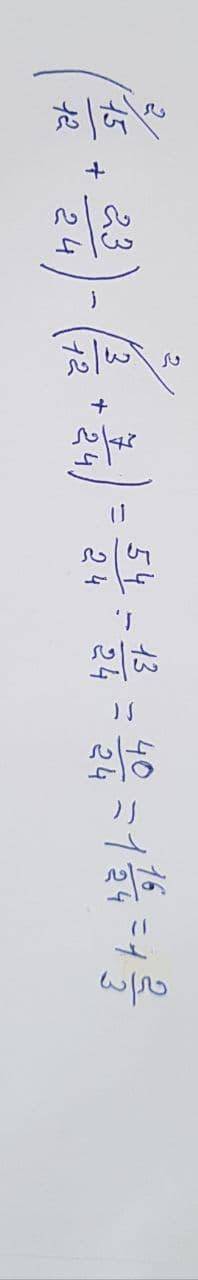 (²/15/12 + 23/24) - (²/3/12 + 7/24) = 54/24 - 13/24 = 40/24 = 1 16/24 = 1 2/3